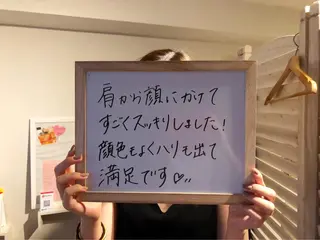 肩から顔にかけて
すごくスッキリしました!
顔色もよくハリも出て
満足です♡